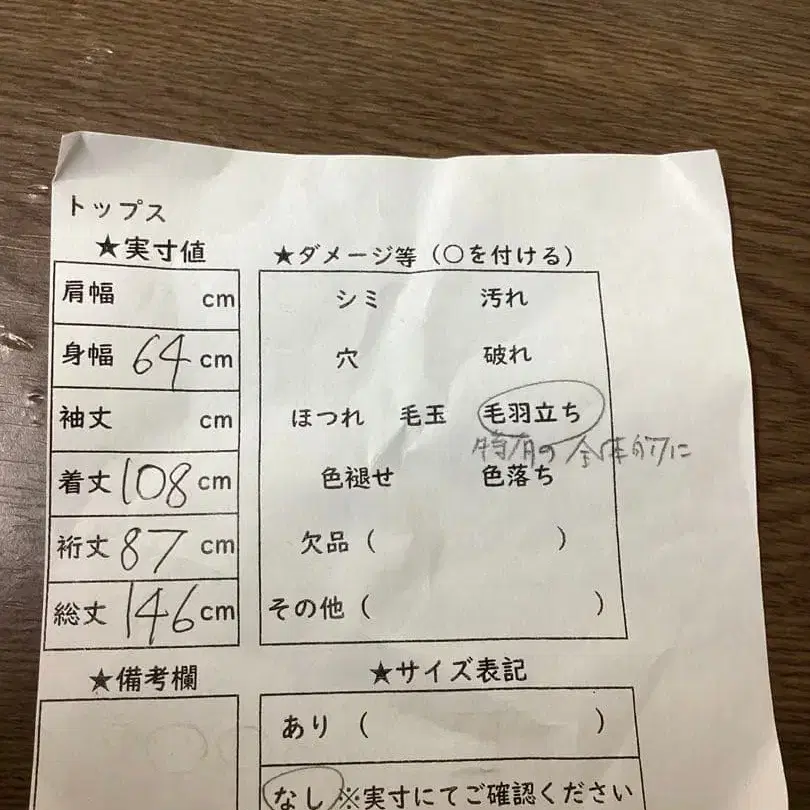 トップス
★実寸値
肩幅 cm
身幅 64 cm
袖丈 cm
着丈 108 cm
裄丈 87 cm
総丈 146 cm
★備考欄
★ダメージ等(○を付ける)
シミ 汚れ
穴 破れ
ほつれ 毛玉 毛羽立ち
特有の 全体的に
色褪せ 色落ち
欠品( )
その他( )
★サイズ表記
あり( )
なし ※実寸にてご確認ください